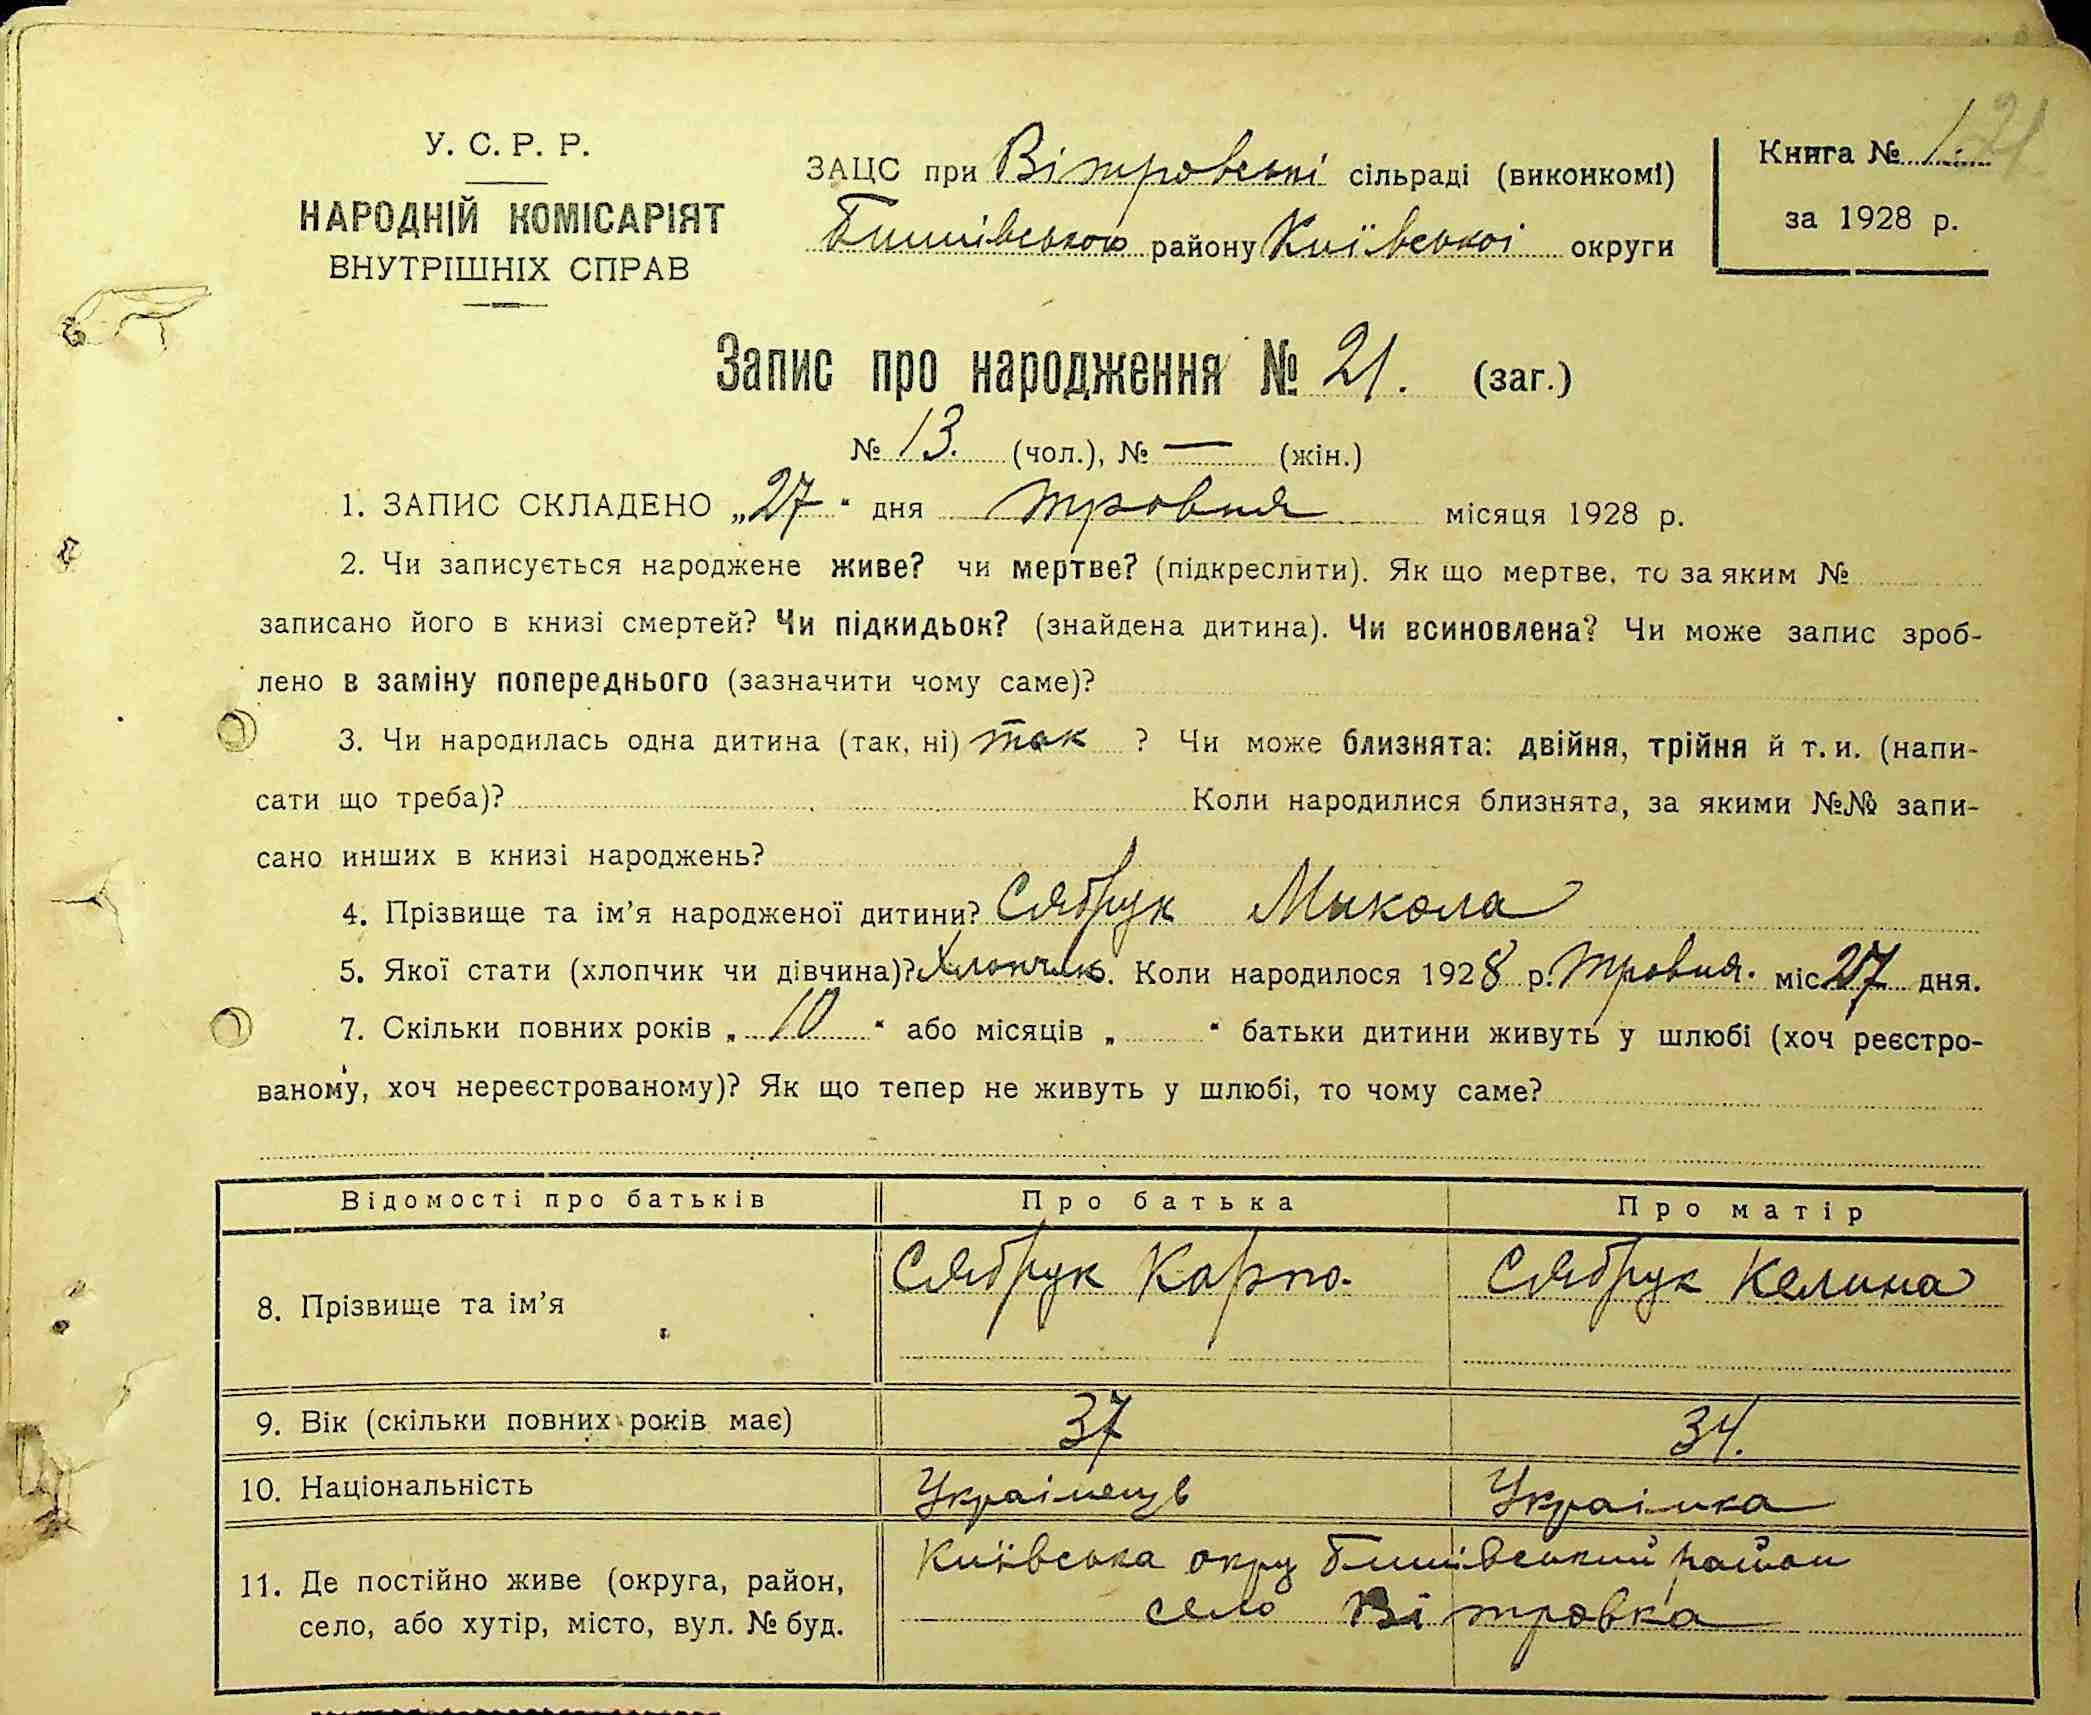 У. С. Р. Р.
НАРОДНІЙ КОМІСАРІЯТ
ВНУТРІШНІХ СПРАВ
ЗАЦС при Вітровські сільраді (виконкомі)
Бишівського району Київської округи
Книга № 1
21
за 1928 р.
Запис про народження № 21. (заг.)
№ 13. (чол.), № — (жін.)
1. ЗАПИС СКЛАДЕНО „27“ дня травня місяця 1928 р.
2. Чи записується народжене живе? чи мертве? (підкреслити). Як що мертве, то за яким №
записано його в книзі смертей? Чи підкидьок? (знайдена дитина). Чи всиновлена? Чи може запис зроб-
лено в заміну попереднього (зазначити чому саме)?
3. Чи народилась одна дитина (так, ні) так ? Чи може близнята: двійня, трійня й т. и. (напи-
сати що треба)? Коли народилися близнята, за якими №№ запи-
сано инших в книзі народжень?
4. Прізвище та ім’я народженої дитини? Сябрук Микола
5. Якої стати (хлопчик чи дівчина)? Хлопчик. Коли народилося 1928 р. травня. міс. 27 дня.
7. Скільки повних років „ 10 “ або місяців „ “ батьки дитини живуть у шлюбі (хоч реєстро-
ваному, хоч нереєстрованому)? Як що тепер не живуть у шлюбі, то чому саме?
Відомості про батьків Про батька Про матір
8. Прізвище та ім’я Сябрук Карпо. Сябрук Келина
9. Вік (скільки повних років має) 37 34.
10. Національність Українець Українка
11. Де постійно живе (округа, район,
село, або хутір, місто, вул. № буд.
Київська окру Бишівський район
село Вітровка